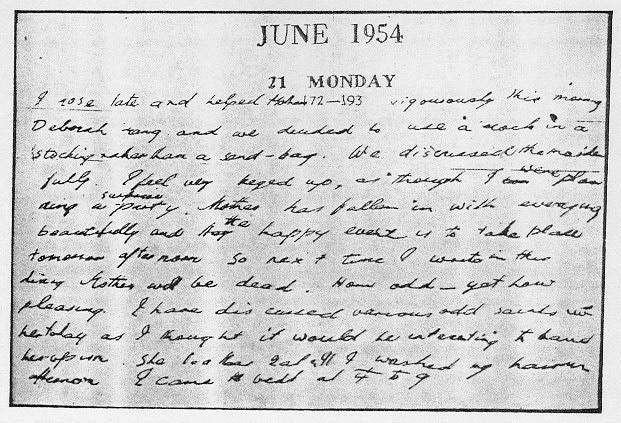 JUNE 1954
21 MONDAY
I rose late and helped Mother 172—193 vigourously this morning
Deborah rang and we decided to use a rock in a
stocking rather than a sand-bag. We discussed the murder
fully. I feel very keyed up, as though I were plan
ning a surprise party. Mother has fallen in with everything
beautifully and the happy event is to take place
tomorrow afternoon So next time I write in this
diary Mother will be dead. How odd — yet how
pleasing. I have discussed various odd saints with
her today as I thought it would be interesting to have
her opinion. She loathes I washed my hair
I came to bed at ¼ to 9